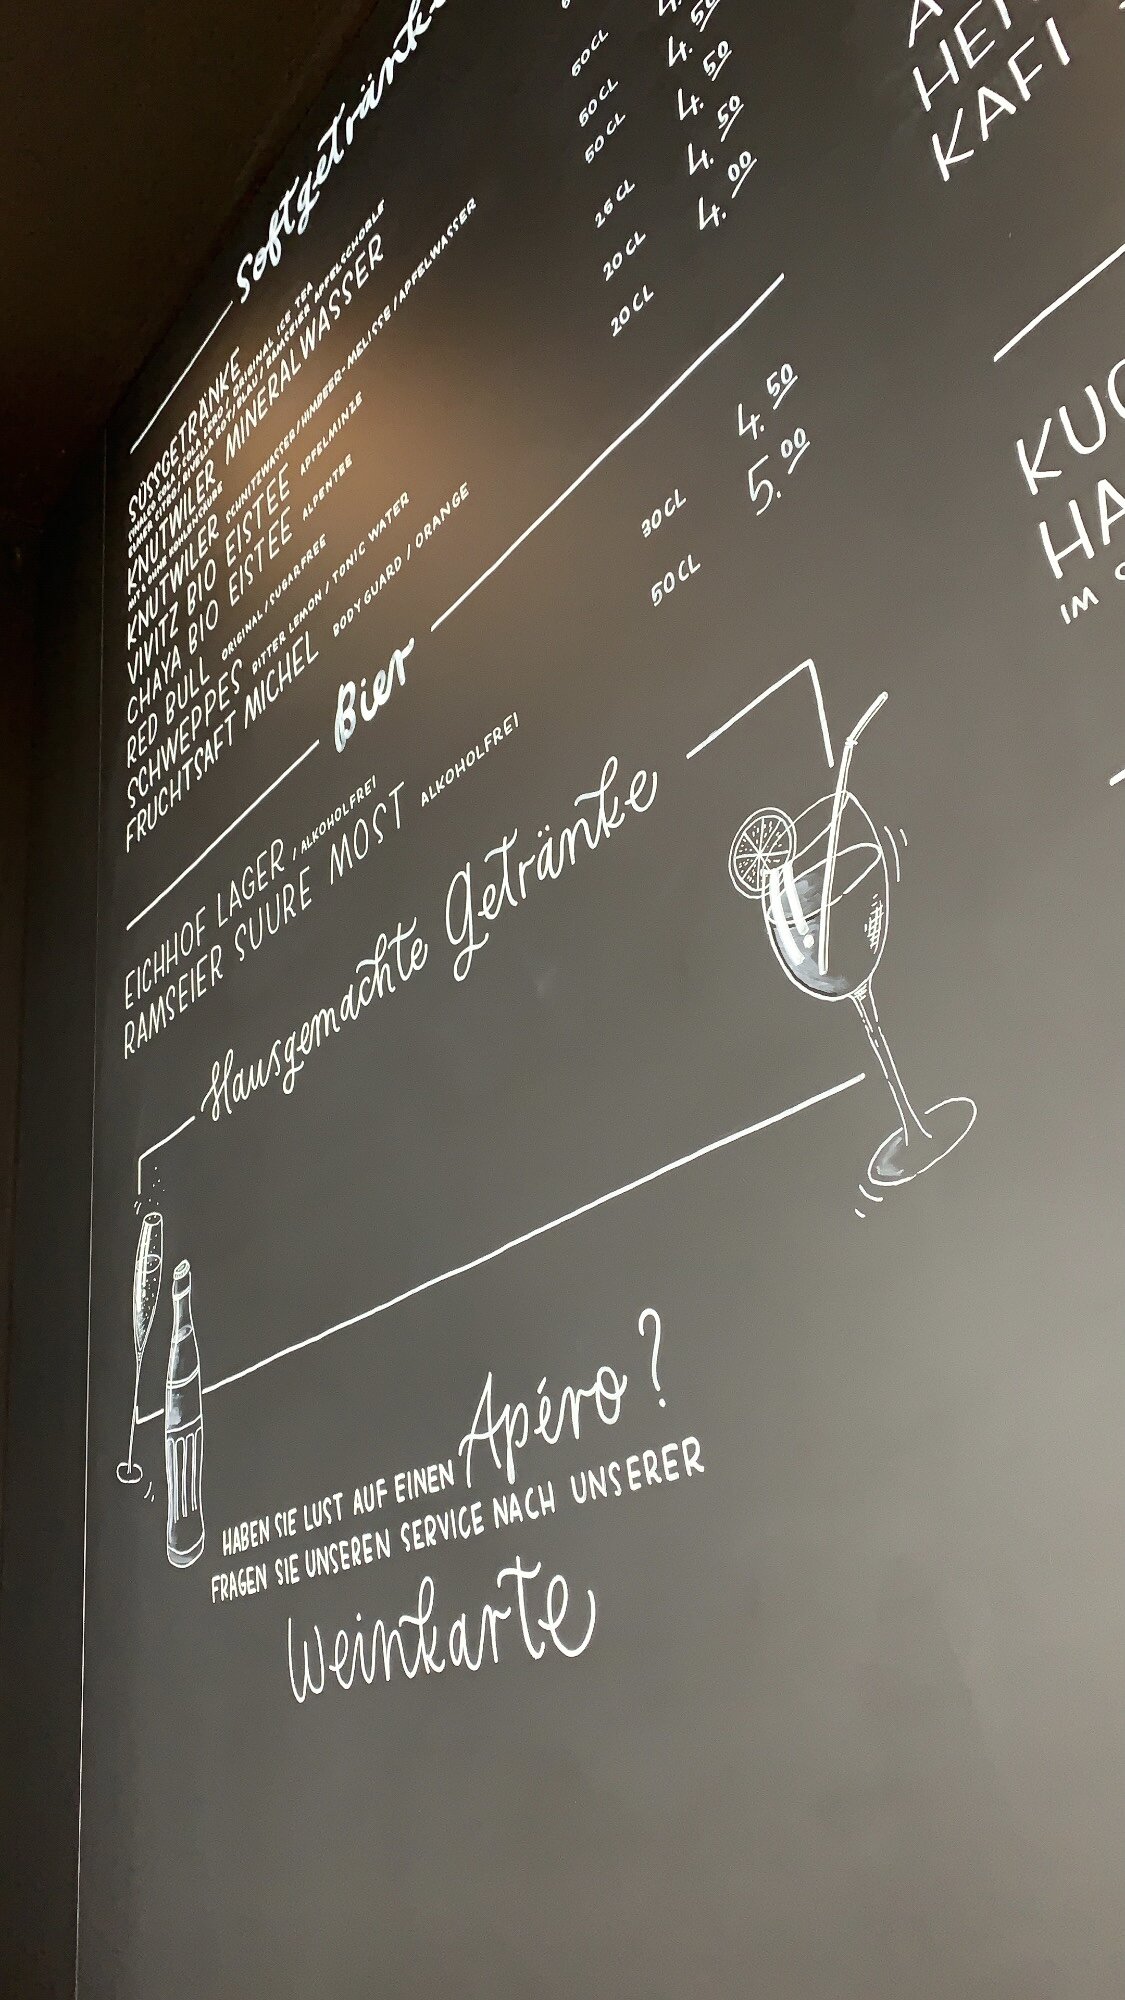 Softgetränke
SÜSSGETRÄNKE
SINALCO COLA / COLA ZERO / ORIGINAL ICE TEA
ELMER CITRO / RIVELLA ROT/BLAU / RAMSEIER APFELSCHORLE
KNUTWILER MINERALWASSER
MIT & OHNE KOHLENSÄURE
KNUTWILER SCHNITZWASSER / HIMBEER-MELISSE / APFELWASSER 50 CL 4.50
VIVITZ BIO EISTEE APFELMINZE 50 CL 4.50
CHAYA BIO EISTEE ALPENTEE 50 CL 4.50
RED BULL ORIGINAL / SUGARFREE 25 CL 4.50
SCHWEPPES BITTER LEMON / TONIC WATER 20 CL 4.00
FRUCHTSAFT MICHEL BODYGUARD / ORANGE 20 CL
Bier
EICHHOF LAGER, ALKOHOLFREI 30 CL 4.50
RAMSEIER SUURE MOST ALKOHOLFREI 50 CL 5.00
Hausgemachte Getränke
HABEN SIE LUST AUF EINEN Apéro?
FRAGEN SIE UNSEREN SERVICE NACH UNSERER
Weinkarte
KAFI
IM